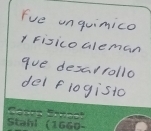 Fue un quimico
y Fisico aleman
que desarrollo
del Flogisto
Stahl (1660-